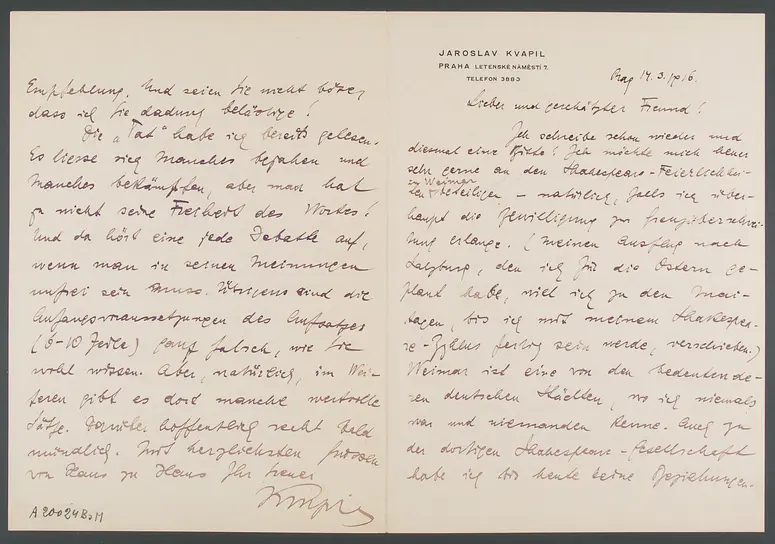 JAROSLAV KVAPIL
PRAHA LETENSKÉ NÁMĚSTÍ 7.
TELEFON 3883
Prag 14.3.1916.
Lieber und geschätzter Freund!
Ich schreibe schon wieder und
diesmal eine Bitte! Ich möchte mich heuer
sehr gerne an den Shakespeare-Feierlichkei-
ten in Weimar beteiligen – natürlich, falls ich über-
haupt die Bewilligung zur Grenzüberschrei-
tung erlange. (Meinen Ausflug nach
Salzburg, den ich für die Ostern ge-
plant habe, will ich zu den Mai-
tagen, bis ich mit meinem Shakespea-
re-Zyklus fertig sein werde, verschieben.)
Weimar ist eine von den bedeutende-
ren deutschen Städten, wo ich niemals
war und niemanden kenne. Auch zu
der dortigen Shakespeare-Gesellschaft
habe ich bis heute keine Beziehungen.
Empfehlung. Und seien Sie nicht böse,
dass ich Sie dadurch belästige!
Die „Tat" habe ich bereits gelesen.
Es liesse sich Manches bejahen und
Manches bekämpfen, aber man hat
ja nicht seine Freiheit des Wortes!
Und da hört eine jede Debatte auf,
wenn man in seinen Meinungen
unfrei sein muss. Übrigens sind die
Anfangsvoraussetzungen des Aufsatzes
(6-10 Zeile) ganz falsch, wie Sie
wohl wissen. Aber, natürlich, im Wei-
teren gibt es dort manche wertvolle
Sätze. Darüber hoffentlich recht bald
mündlich. Mit herzlichsten Grüssen
von Haus zu Haus Ihr treuer
Kvapil
A 20024 Ba M